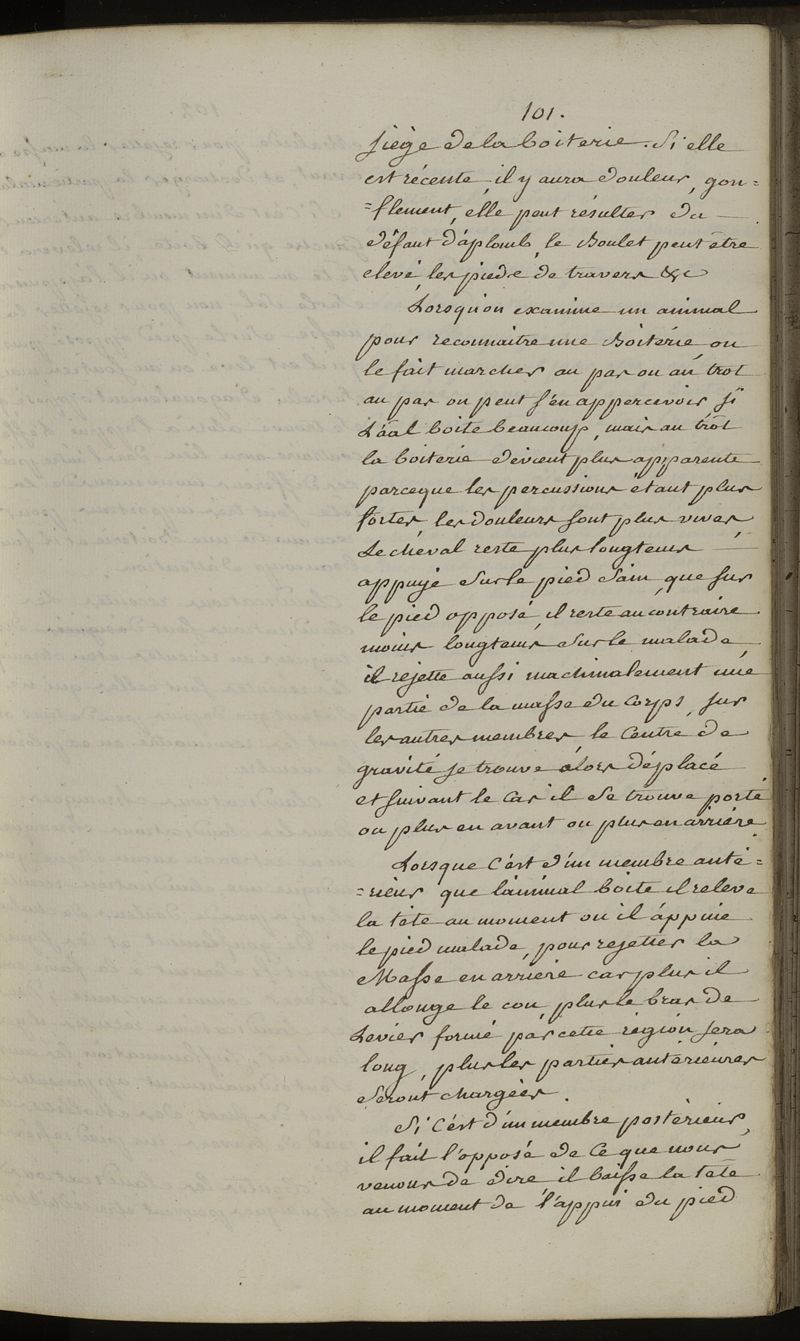 101.
siège de la boiterie. Si elle
est récente, il y aura douleur, gon=
=flement, elle peut résulter du
défaut d'áplomb, le Boulet peut être
elevé, les pieds de travers &c
Lorsqu'on examine un animal
pour reconnaitre une Boiterie on
le fait marcher au pas ou au trot
au pas on peut s'en appercevoir si
L'áal boite beaucoup, mais au trôt
la boiterie devient plus apparente
parceque les percussions etant plus
fortes, les douleurs sont plus vives
Le chéval reste plus longtems
appuyé sur le pied Sain, que sur
le pied opposé, il reste au contraire
moins longtems sur le malade,
il rejette aussi machinalement une
partie de la masse du corps, sur
les autres membres, le Centre de
gravité se trouve álors déplacé
et suivant le Cas il se trouve porté
ou plus en avant ou plus en arriére
Lorsque C'est d'un membre anté=
=rieur que lánimal boite il releve
la tête au moment ou il áppuie
le pied malade, pour rejetter la
Masse en arriere car plus il
allonge le cou, plus le bras de
Levier formé par cette région sera
long, plus les parties antérieures
Seront chargées.
Si C'ést d'un membre postérieur,
il fait l'opposé de Ce que nous
venons de dire il baisse la tête
au moment de l'appui du pied